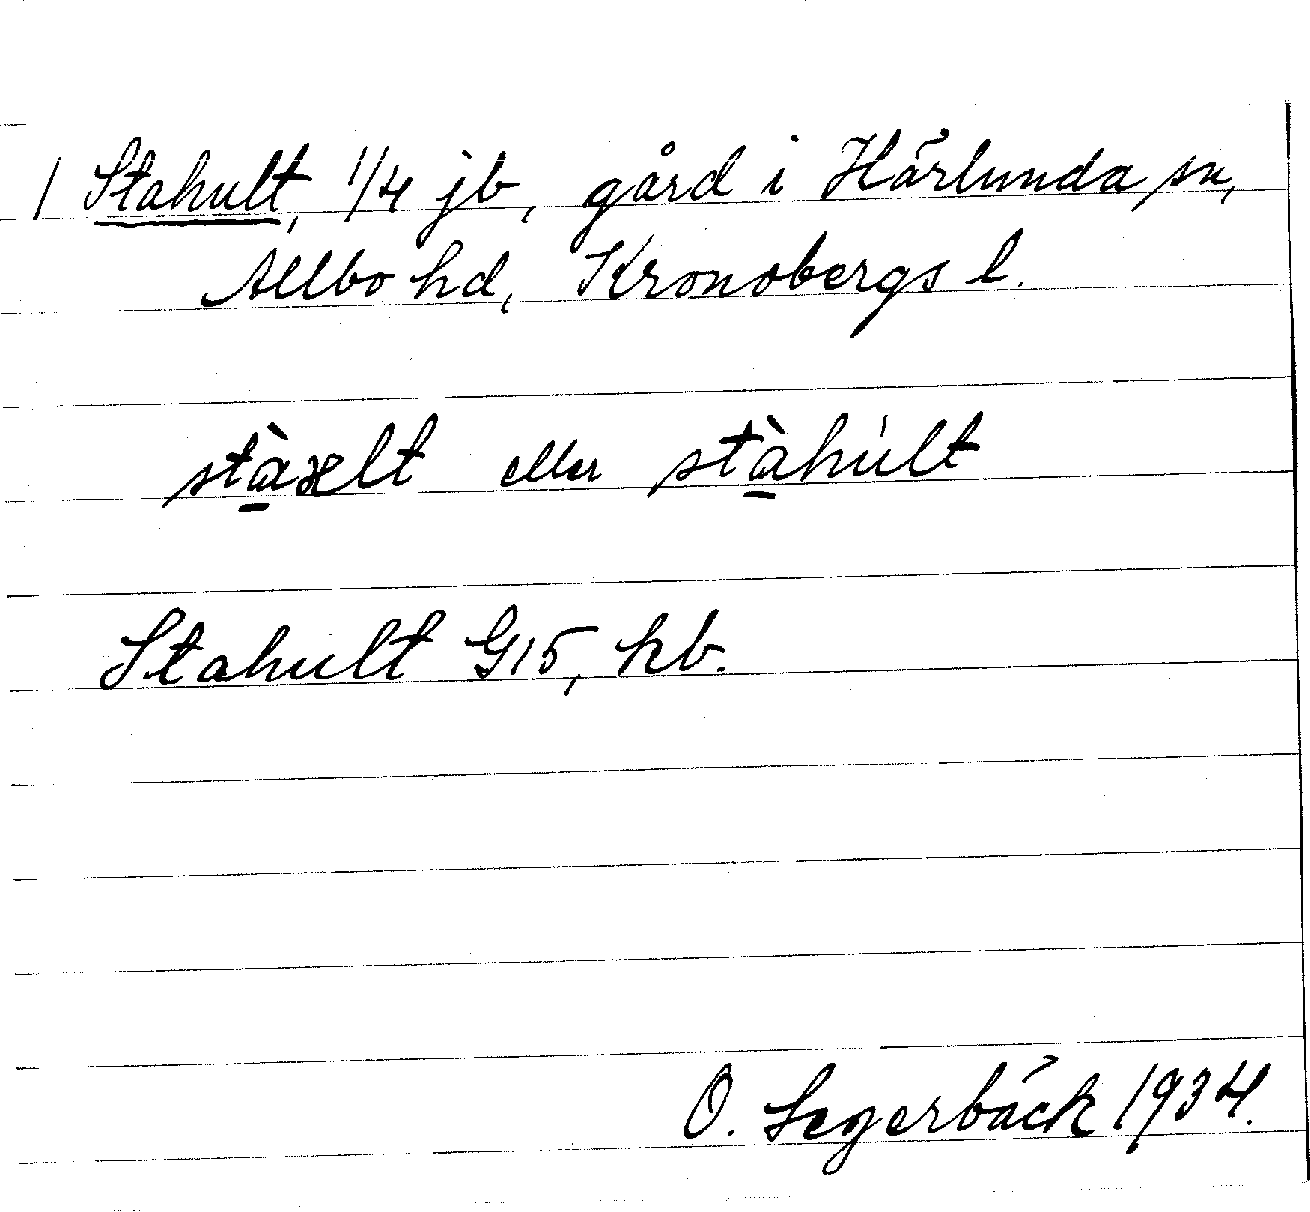 1 Stahult, 1/4 jb, gård i Härlunda sn,
Allbo hd, Kronobergs l.
stàxlt eller stàhúlt
Stahult G15, hb.
O. Segerbäck 1934.